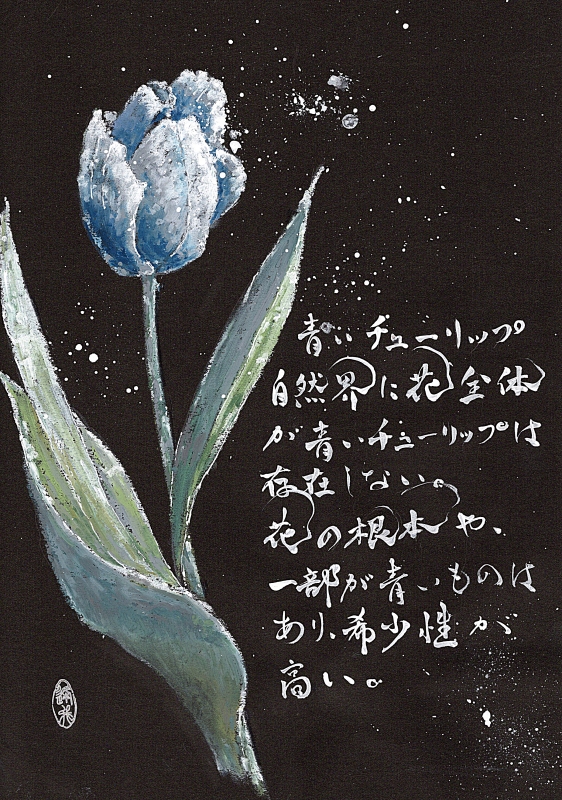 青いチューリップ
自然界に花全体
が青いチューリップは
存在しない。
花の根本や、
一部が青いものは
あり、希少性が
高い。